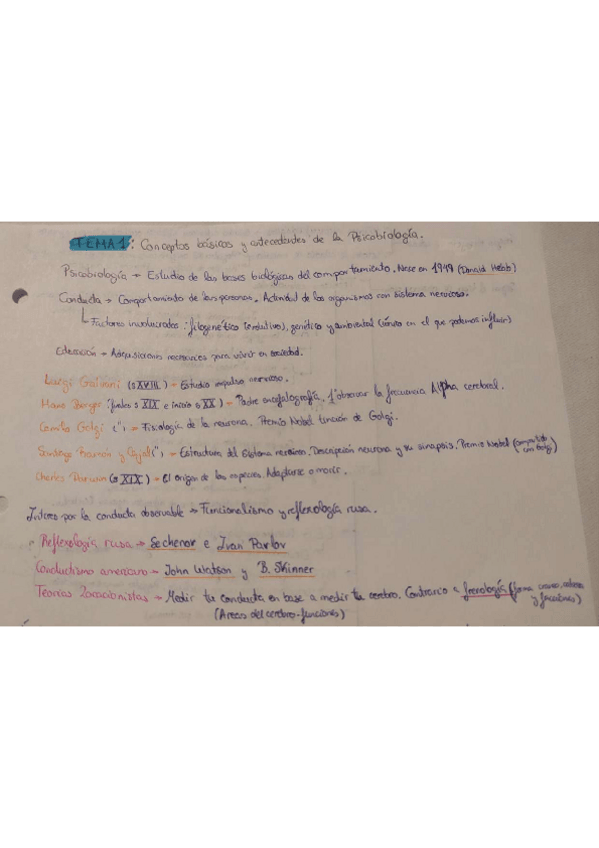 TEMA 1: Conceptos básicos y antecedentes de la Psicobiología.
Psicobiología → Estudio de las bases biológicas del comportamiento. Nace en 1949 (Donald Hebb)
Conducta → Comportamiento de las personas. Actividad de los organismos con sistema nervioso.
Factores involucrados: filogenético (evolutivo), genético y ambiental (único en el que podemos influir)
Educación → Adquisiciones necesarias para vivir en sociedad.
Luigi Galvani (s XVIII) → Estudio impulso nervioso.
Hans Berger (finales s XIX e inicio s XX) → Padre encefalografía, 1º observar la frecuencia Alpha cerebral.
Camilo Golgi (") → Fisiología de la neurona. Premio Nobel tinción de Golgi.
Santiago Ramón y Cajal (") → Estructura del sistema nervioso. Descripción neurona y su sinapsis. Premio Nobel (compartido con Golgi)
Charles Darwin (s XIX) → El origen de las especies. Adaptarse o morir.
Interés por la conducta observable → Funcionalismo y reflexología rusa.
Reflexología rusa → Sechenov e Ivan Pavlov
Conductismo americano → John Watson y B. Skinner
Teorías Locacionistas → Medir tu conducta en base a medir tu cerebro. Contrario a frenología (forma craneo, cabeza y facciones)
(Areas del cerebro-funciones)